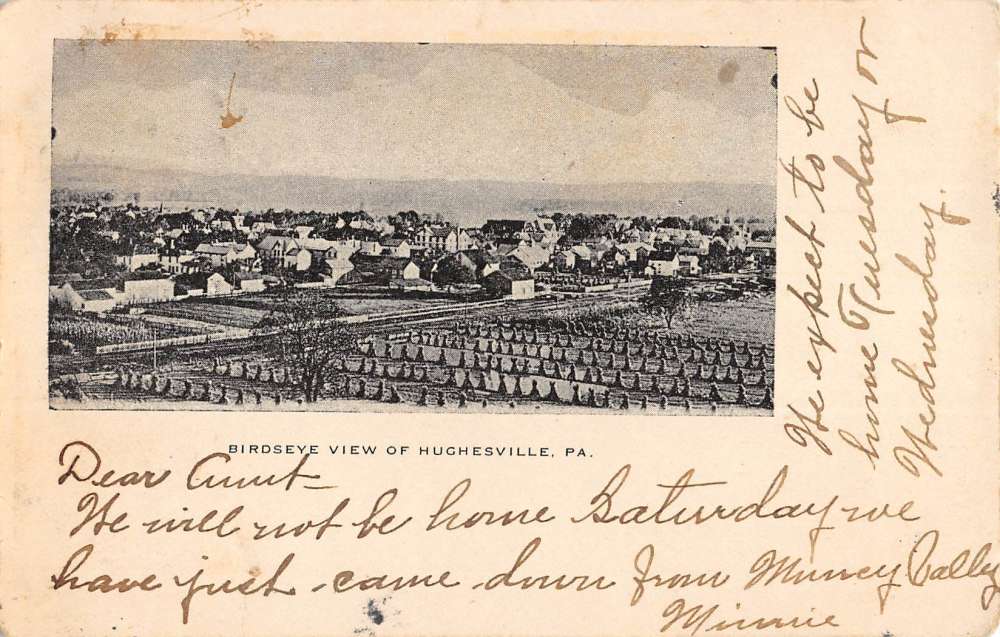 BIRDSEYE VIEW OF HUGHESVILLE, PA.
Dear Aunt-
We will not be home Saturday we
have just came down from Muncy Valley
Minnie
We expect to be
home Tuesday or
Wednesday.